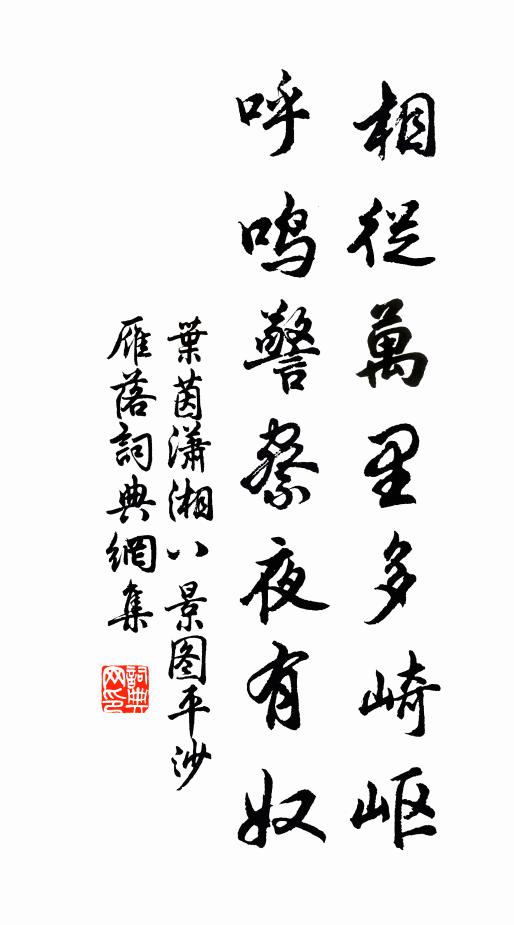 相從萬里多崎岖
呼鳴警察夜有奴
葉茵瀟湘八景图平沙
雁落詞典網集
詞典网印